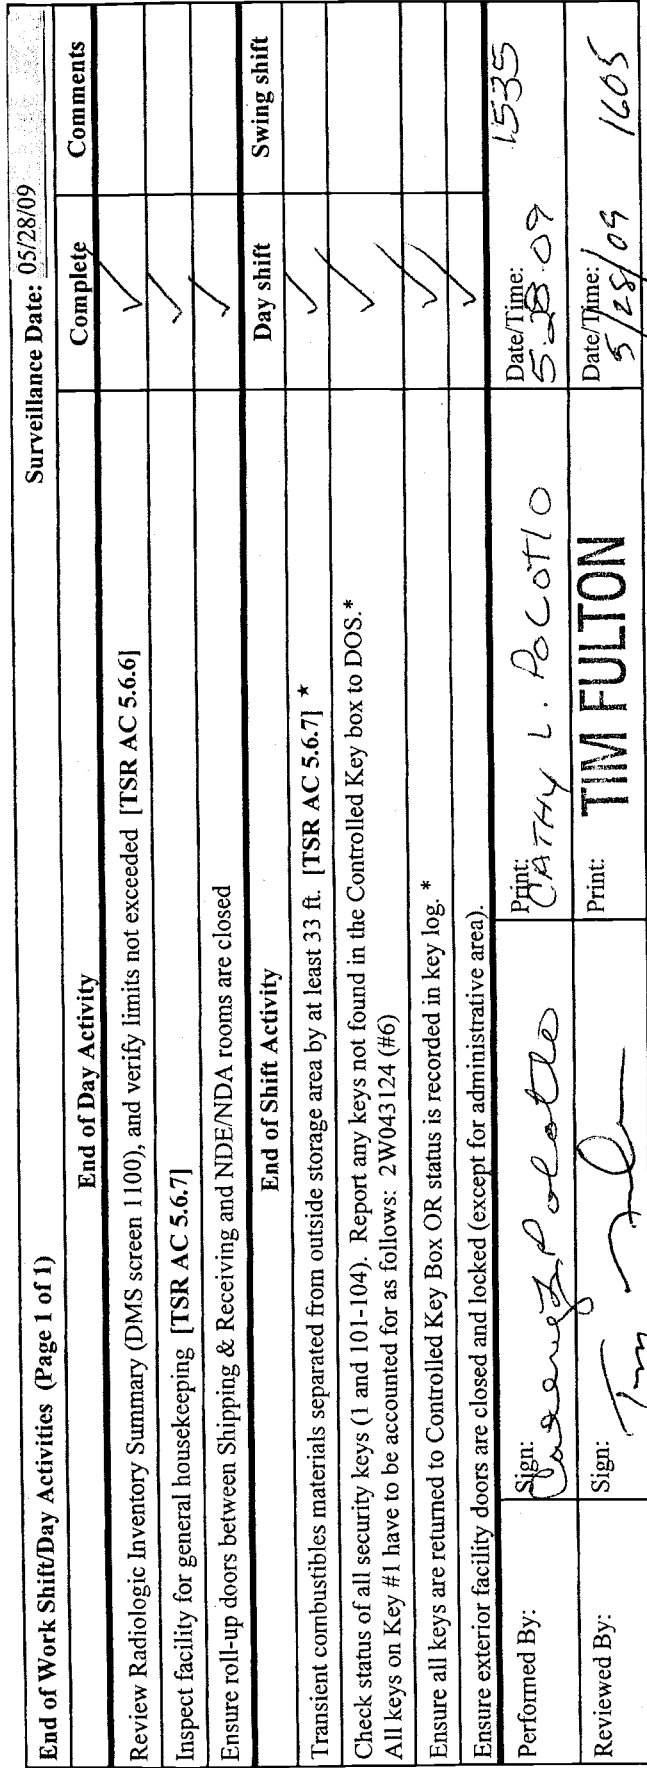 End of Work Shift/Day Activities (Page 1 of 1) Surveillance Date: 05/28/09
End of Day Activity Complete Comments
Review Radiologic Inventory Summary (DMS screen 1100), and verify limits not exceeded [TSR AC 5.6.6] ✓
Inspect facility for general housekeeping [TSR AC 5.6.7] ✓
Ensure roll-up doors between Shipping & Receiving and NDE/NDA rooms are closed ✓
End of Shift Activity Day shift Swing shift
Transient combustibles materials separated from outside storage area by at least 33 ft. [TSR AC 5.6.7] * ✓
Check status of all security keys (1 and 101-104). Report any keys not found in the Controlled Key box to DOS.* ✓
All keys on Key #1 have to be accounted for as follows: 2W043124 (#6)
Ensure all keys are returned to Controlled Key Box OR status is recorded in key log. * ✓
Ensure exterior facility doors are closed and locked (except for administrative area). ✓
Performed By: Sign: Print: CATHY L. POLOTTO Date/Time: 5.28.09 1535
Reviewed By: Sign: Tim Print: TIM FULTON Date/Time: 5/28/09 1605